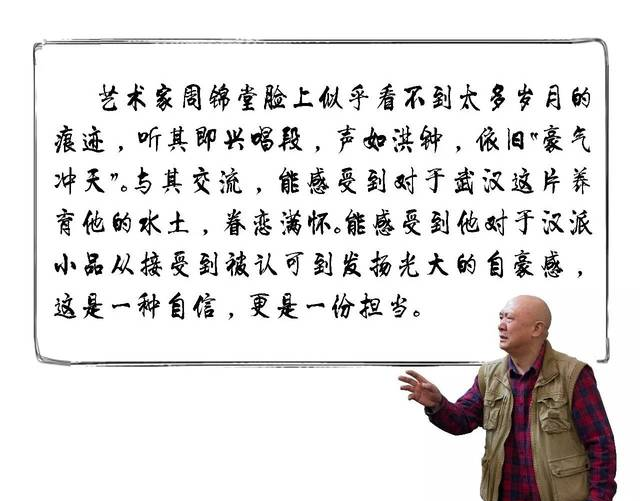 艺术家周锦堂脸上似乎看不到太多岁月的
痕迹，听其即兴唱段，声如洪钟，依旧“豪气
冲天”。与其交流，能感受到对于武汉这片养
育他的水土，眷恋满怀。能感受到他对于汉派
小品从接受到被认可到发扬光大的自豪感，
这是一种自信，更是一份担当。